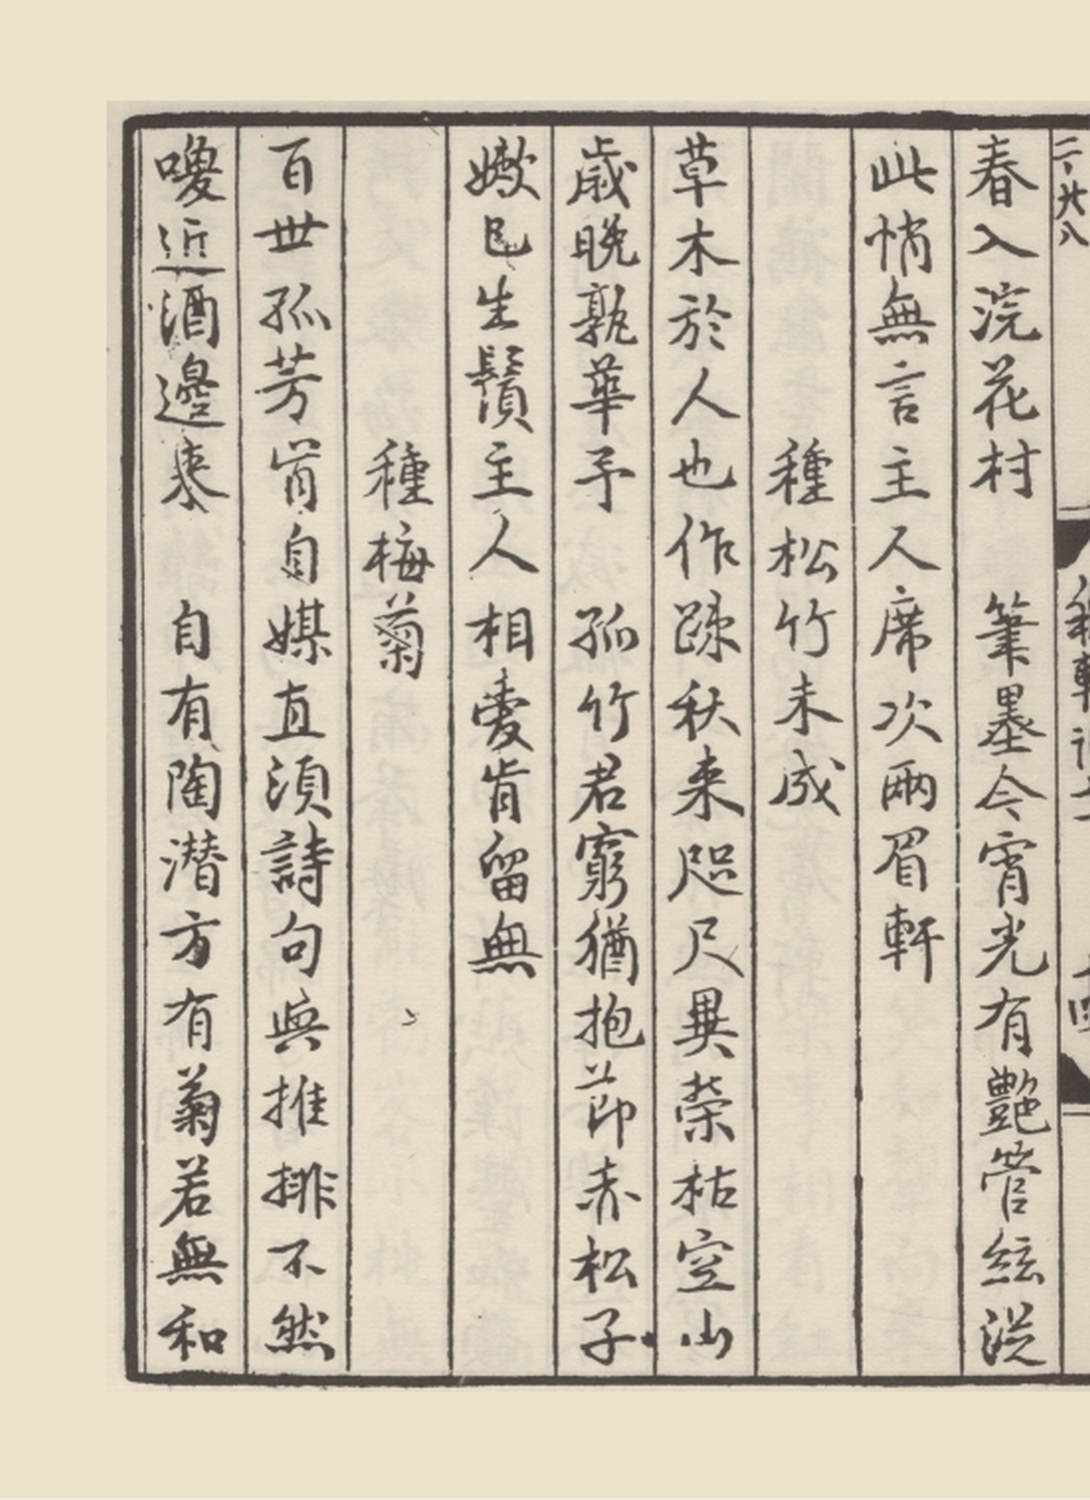 二ノ廿八
春入浣花村　筆墨今宵光有艶管絃従
此悄無言主人席次兩眉軒
種松竹未成
草木於人也作踈秋来咫尺異榮枯空山
歳晚孰華予　孤竹君窮猶抱莭赤松子
嫰已生鬚主人相愛肯留無
種梅菊
百世孤芳肯自媒直須詩句與推排不然
喚近酒邊来　自有陶潜方有菊若無和